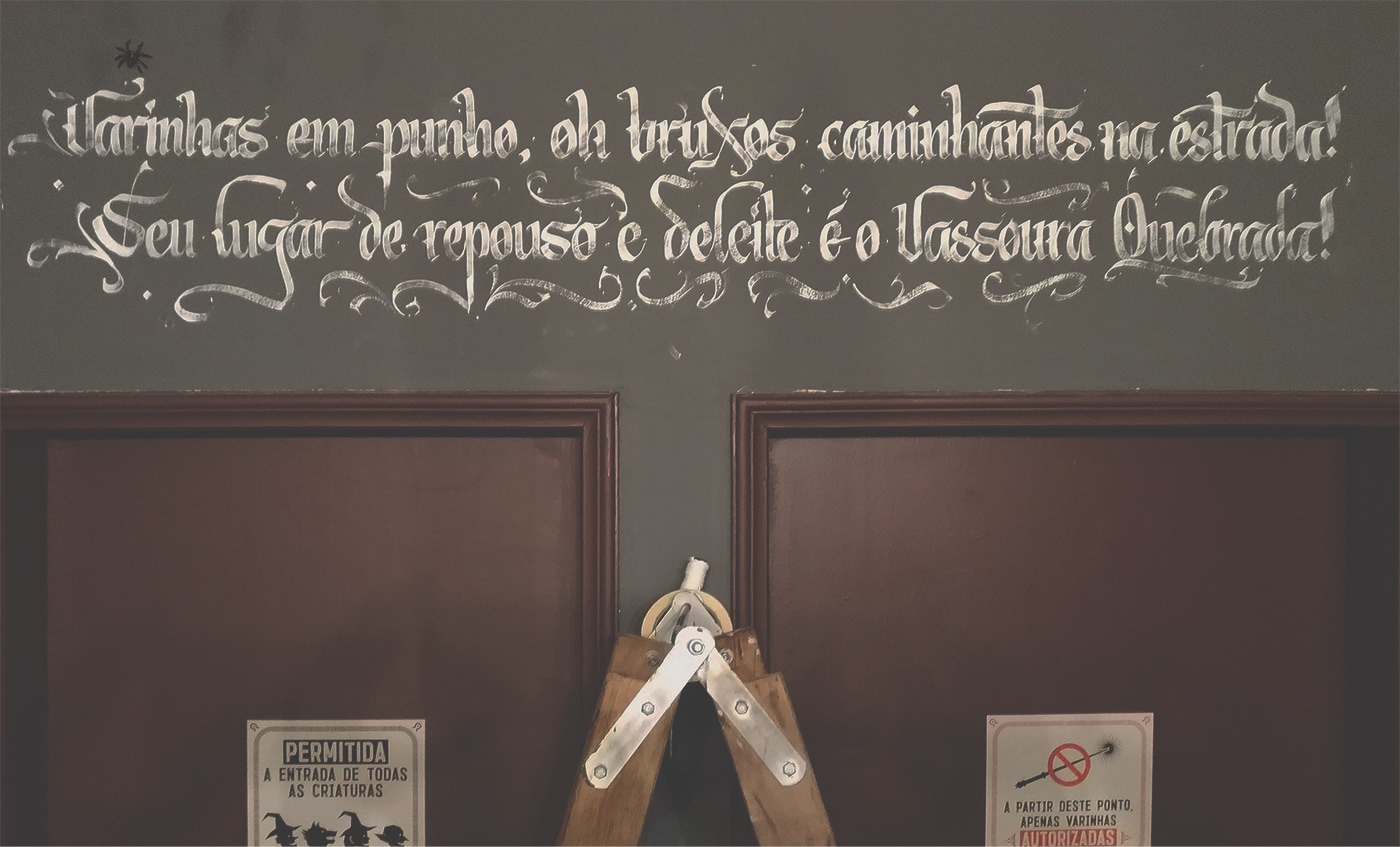 Varinhas em punho, oh bruxos caminhantes na estrada!
Seu lugar de repouso e deleite é o Vassoura Quebrada!
PERMITIDA
A ENTRADA DE TODAS
AS CRIATURAS
A PARTIR DESTE PONTO,
APENAS VARINHAS
AUTORIZADAS